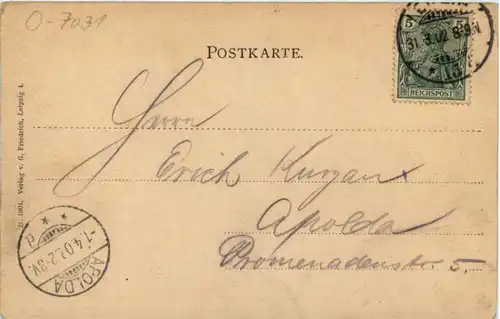 O-7031
POSTKARTE.
5 5
REICHSPOST
31.3.02 8-9N
Herrn
Erich Kurzan
Apolda
Promenadenstr. 5.
APOLDA
-1.4.02.2-3V.
Verlag v. G. Friedrich, Leipzig 4.